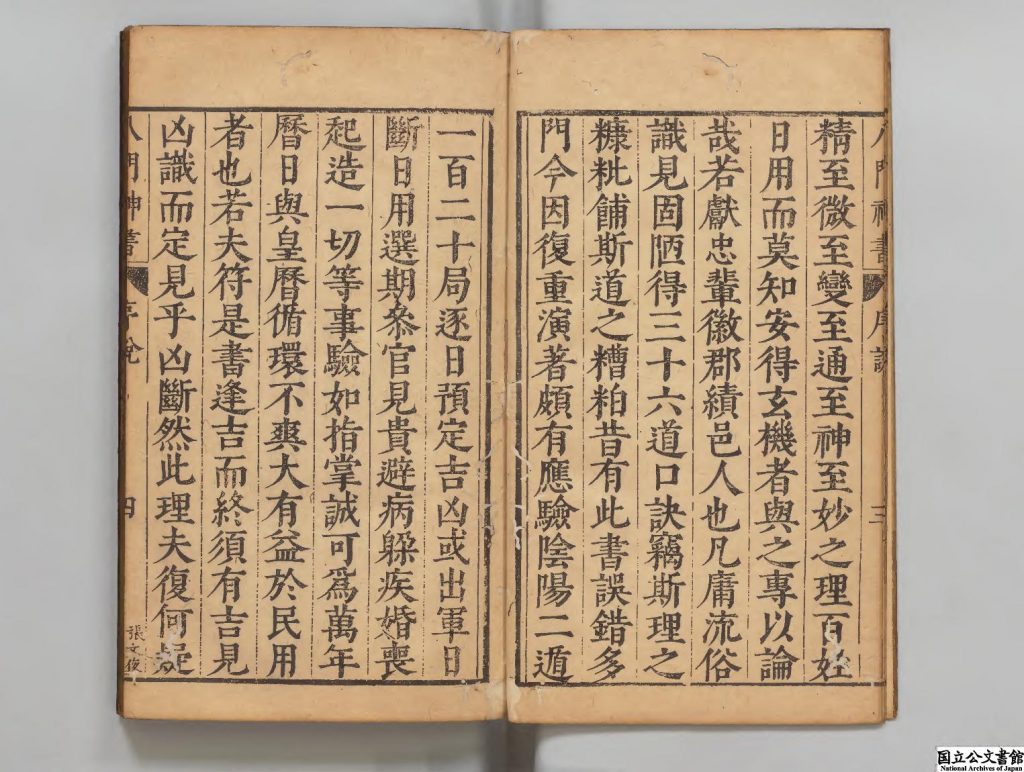 精至微至變至通至神至妙之理百姓
日用而莫知安得玄機者與之專以論
哉若獻忠輩徽郡績邑人也凡庸流俗
識見固陋得三十六道口訣竊斯理之
糠粃餔斯道之糟粕昔有此書誤錯多
門今因復重演著頗有應驗陰陽二遁
一百二十局逐日預定吉凶或出軍日
斷日用選期叅官見貴避病躲疾婚喪
起造一切等事驗如指掌誠可爲萬年
曆日與皇曆循環不爽大有益於民用
者也若夫符是書逢吉而終須有吉見
凶識而定見乎凶斷然此理夫復何疑
八門神書 序說 三
八門神書 序說 四
張文俊
国立公文書館
National Archives of Japan